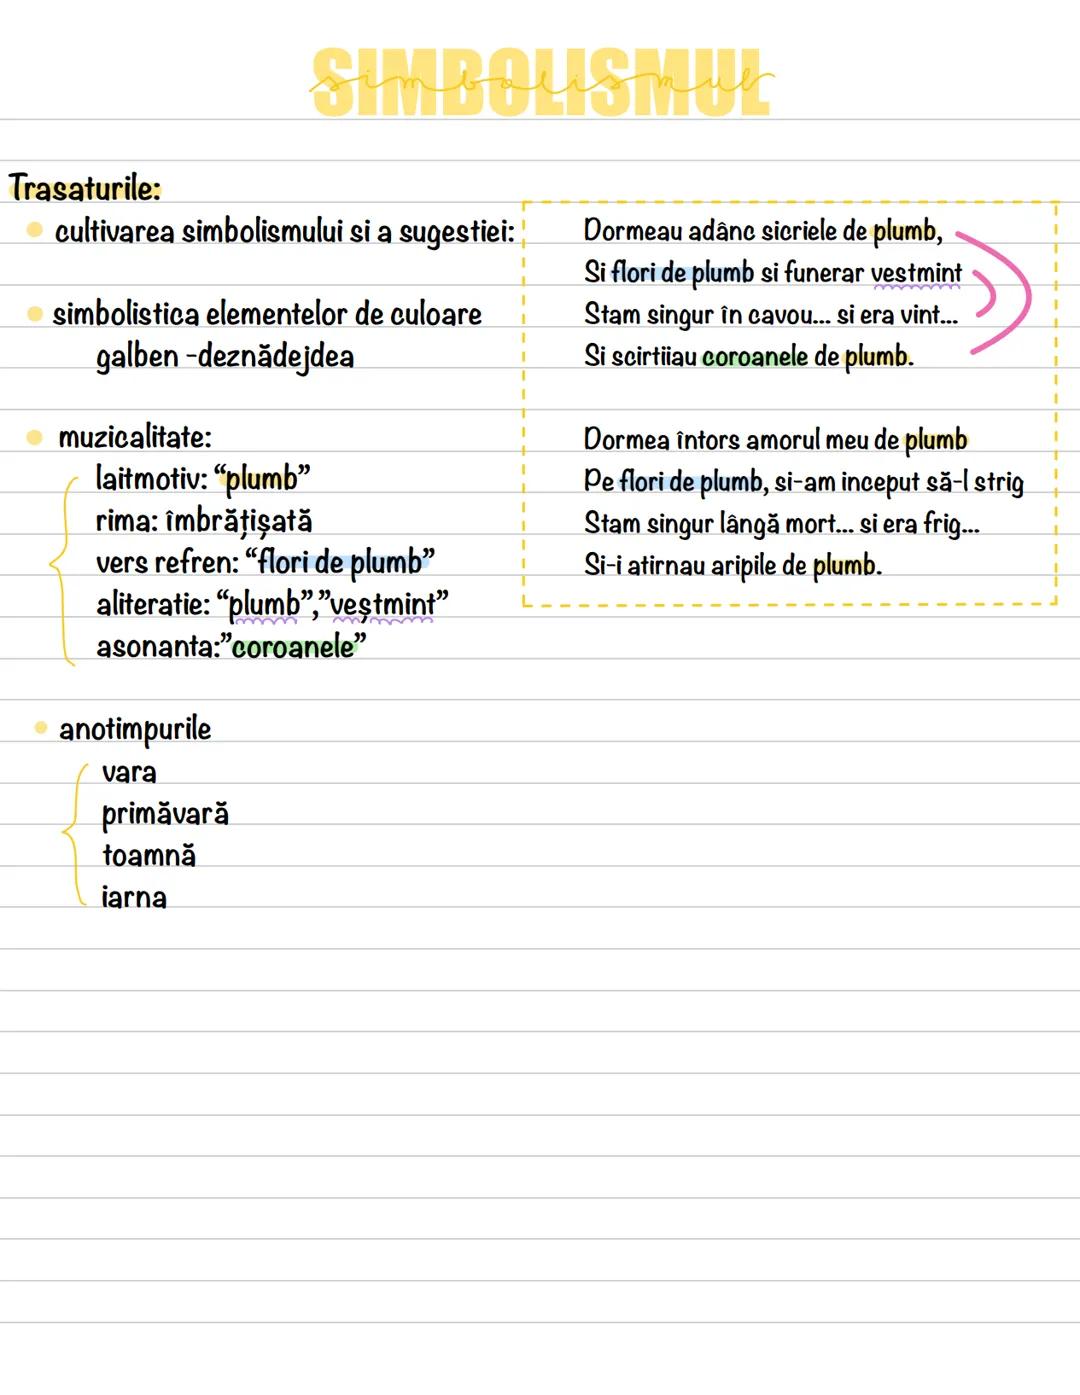 SIMBOLISMUL
simbolismul
Trasaturile:
cultivarea simbolismului si a sugestiei:
simbolistica elementelor de culoare
galben -deznădejdea
muzicalitate:
laitmotiv: “plumb”
rima: îmbrățișată
vers refren: “flori de plumb”
aliteratie: “plumb”,”veștmint”
asonanta:”coroanele”
anotimpurile
vara
primăvară
toamnă
iarna
Dormeau adânc sicriele de plumb,
Si flori de plumb si funerar vestmint
Stam singur în cavou... si era vint...
Si scirtiiau coroanele de plumb.
Dormea întors amorul meu de plumb
Pe flori de plumb, si-am inceput să-l strig
Stam singur lângă mort... si era frig...
Si-i atirnau aripile de plumb.